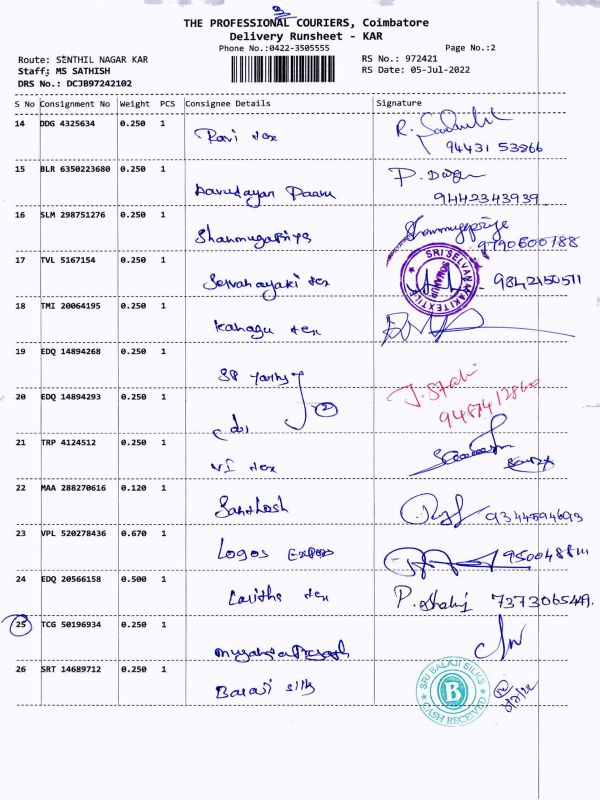 THE PROFESSIONAL COURIERS, Coimbatore
Delivery Runsheet - KAR
Phone No.:0422-3505555
Page No.:2
Route: SENTHIL NAGAR KAR
RS No.: 972421
Staff: MS SATHISH
RS Date: 05-Jul-2022
DRS No.: DCJB97242102
S No Consignment No Weight PCS Consignee Details Signature
14 DDG 4325634 0.250 1 Ravi tex R.
94431 53866
15 BLR 6350223680 0.250 1 P.
9442343939
16 SLM 298751276 0.250 1 Shanmugapriya Shanmugapriya
9790600188
17 TVL 5167154 0.250 1 Selvanayaki tex SRI SELVANAYAKI TEXTILE 9842150511
18 TMI 20064195 0.250 1 Kanagu tex
19 EDQ 14894268 0.250 1 SP
20 EDQ 14894293 0.250 1 2 J.
21 TRP 4124512 0.250 1 VI tex
22 MAA 288270616 0.120 1 Santhosh 9344594693
23 VPL 520278436 0.670 1 Logos Express
24 EDQ 20566158 0.500 1 tex P. Shalij
25 TCG 50196934 0.250 1
26 SRT 14689712 0.250 1 Balaji silk SRI BALAJI SILKS B CASH RECEIVED